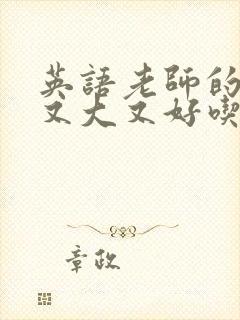 英語老師的
又大又好喫
章政